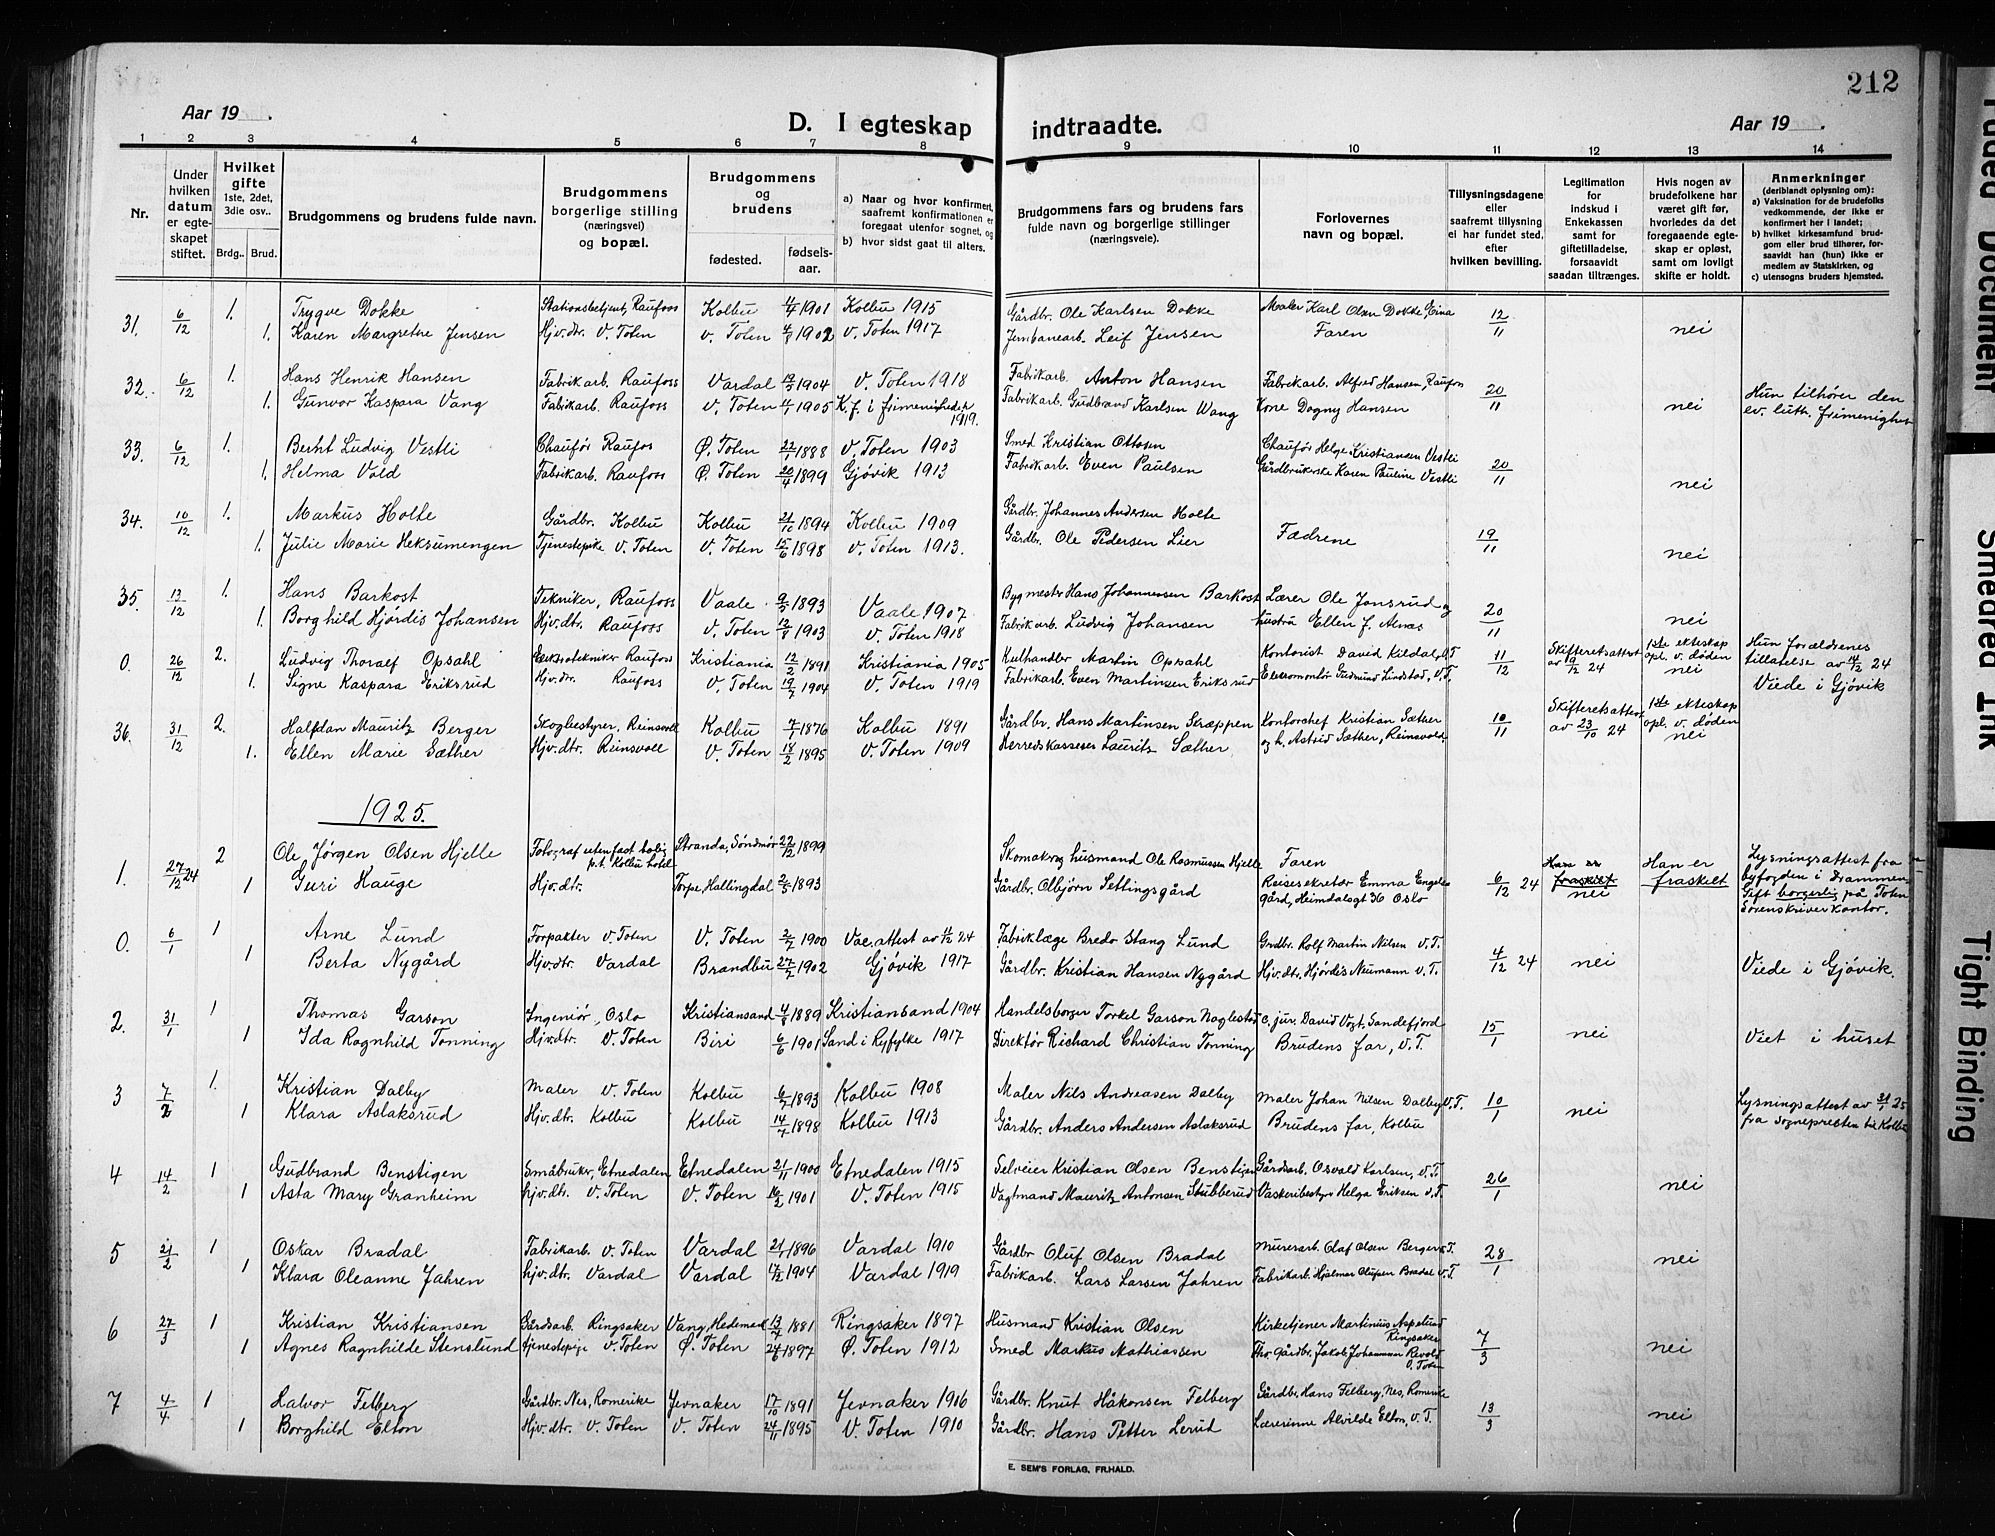 212
Aar 19 .
D. I egteskap indtraadte.
Aar 19 .
1 2 3 4 5 6 7 8 9 10 11 12 13 14
Nr.
Under hvilken datum er egteskapet stiftet.
Hvilket gifte 1ste, 2det, 3die osv..
Brdg.. Brud.
Brudgommens og brudens fulde navn.
Brudgommens borgerlige stilling (næringsvei) og bopæl.
Brudgommens og brudens
fødested. fødselsaar.
a) Naar og hvor konfirmert, saafremt konfirmationen er foregaat utenfor sognet, og
b) hvor sidst gaat til alters.
Brudgommens fars og brudens fars fulde navn og borgerlige stillinger (næringsveie).
Forlovernes navn og bopæl.
Tillysningsdagene eller saafremt tillysning ei har fundet sted, efter hvilken bevilling.
Legitimation for indskud i Enkekassen samt for giftetilladelse, forsaavidt saadan tiltrænges.
Hvis nogen av brudefolkene har været gift før, hvorledes da det foregaaende egteskap er opløst, samt om lovligt skifte er holdt.
Anmerkninger (deriblandt oplysning om): a) Vaksination for de brudefolks vedkommende, der ikke er konfirmert her i landet; b) hvilket kirkesamfund brudgom eller brud tilhører, forsaavidt han (hun) ikke er medlem av Statskirken, og c) utensogns bruders hjemsted.
31. 6/12 1. Trygve Dokke Stationsbetjent, Raufoss Kolbu 4/4 1901 Kolbu 1915 Gårdbr. Ole Karlsen Dokke Maler Karl Olsen Dokke, Eina 12/11
1. Karen Margrethe Jensen Hjv. dtr. V. Toten V. Toten 4/8 1902 V. Toten 1917 Jernbanearb. Leif Jensen Faren nei
32. 6/12 1. Hans Henrik Hansen Fabrikarb. Raufoss Vardal 1904 V. Toten 1918 Fabrikarb. Anton Hansen Fabrikarb. Alfred Hansen, Raufoss 20/11 Hun tilhører den
1. Gunvor Kaspara Vang Fabrikarb. Raufoss V. Toten 1905 K.f. i frimenigheden 1919. Fabrikarb. Gudbrand Karlsen Wang Kone Dagny Hansen nei ev. luth. frimenighet
33. 6/12 1. Bernt Ludvig Vestli Chaufør Raufos Ø. Toten 22/1 1888 V. Toten 1903 Smed Kristian Ottosen Chaufør Helge Kristiansen Vestli
1. Helma Vold Fabrikarb. Raufoss Ø. Toten 20/4 1899 Gjøvik 1913 Fabrikarb. Even Paulsen Gårdbrukerske Karen Pauline Vestli 20/11 nei
34. 10/12 1. Markus Holte Gårdbr. Kolbu Kolbu 21/10 1894 Kolbu 1909 Gårdbr. Johannes Andersen Holte
1. Julie Marie Heksumengen Tjenestepike V. Toten V. Toten 15/6 1898 V. Toten 1913. Gårdbr. Ole Pedersen Lier Fædrene 19/11 nei
35. 13/12 1. Hans Barkost Tekniker, Raufoss Vaale 9/5 1893 Vaale 1907 Bygmester Hans Johannessen Barkost Lærer Ole Jonsrud og 20/11
1. Borghild Hjørdis Johansen Hjv. dtr. Raufoss V. Toten 12/8 1903 V. Toten 1918 Fabrikarb. Ludvig Johansen hustru Ellen f. Alnæs nei
0. 26/12 2. Ludvig Thoralf Opsahl Elektrotekniker Raufoss Kristiania 12/2 1891 Kristiania 1905 Kulhandler Martin Opsahl Kontorist David Kildal, V.T. 11/12 Skifteretsattest av 9/12 24 1ste ekteskap opl. v. døden Hun forældrenes tillatelse av 14/12 24
1. Signe Kaspara Eriksrud Hjv. dtr. Raufoss V. Toten 19/7 1904 V. Toten 1919 Fabrikarb. Even Martinsen Eriksrud Elektromontør Gudmund Lindstad, V.T. nei Viede i Gjøvik
36. 31/12 2. Halfdan Mauritz Berger Skogbestyrer, Reinsvoll Kolbu 7/1 1876 Kolbu 1891 Gårdbr. Hans Martinsen Skræppen Kontorchef Kristian Sæther 10/11 Skifteretsattest av 23/10 24 1ste ekteskap opl. v. døden
1. Ellen Marie Sæther Hjv. dtr. Reinsvoll V. Toten 18/2 1895 V. Toten 1909 Herredskasserer Lauritz Sæther og h. Astrid Sæther, Reinsvold nei
1925.
1. 27/12 24 2 Ole Jørgen Olsen Hjelle Fotograf uten fast bolig p.t. Kolbu hotel Stranda, Søndmør 22/12 1899 Skomaker og husmand Ole Rasmussen Hjelle Faren Han er fraskilt Han er fraskilt Lysningsattest fra byfogden i Drammen
1 Guri Hauge Hjv. dtr. Torpe, Hallingdal 2/5 1893 Gårdbr. Olbjørn Settingsgård Reisesekretær Emma Engelsgård, Heimdalsgt 36 Oslo 6/12 24 nei Gift borgerlig på Toten Sorenskriverkontor.
0. 6/1 1 Arne Lund Forpakter V. Toten V. Toten 2/7 1900 Vac. attest av 11/12 24 Fabriklæge Bredo Stang Lund Grdbr. Rolf Martin Nilsen V.T. 4/12 24
1 Berta Nygård Hjv. dtr. Vardal Brandbu 27/7 1902 Gjøvik 1917 Gårdbr. Kristian Hansen Nygård Hjv. dtr. Hjørdis Neumann V.T. nei Viede i Gjøvik.
2. 31/1 1 Thomas Garson Ingeniør, Oslo Kristiansand 4/8 1889 Kristiansand 1904 Handelsborger Torkel Garson Naglestad c. jur. David Vogt, Sandefjord 15/1
1 Ida Ragnhild Tonning Hjv. dtr. V. Toten Biri 6/6 1901 Sand i Ryfylke 1917 Direktør Richard Christian Tonning Brudens far, V.T. nei Viet i huset
3 7/2 1. Kristian Dalby Maler V. Toten Kolbu 1893 Kolbu 1908 Maler Nils Andreasen Dalby Maler Johan Nilsen Dalby V.T. 10/1 Lysningsattest av 31/1 25
1 Klara Aslaksrud Hjv. dtr. Kolbu Kolbu 14/7 1898 Kolbu 1913 Gårdbr. Anders Andersen Aslaksrud Brudens far, Kolbu nei fra sognepresten til Kolbu
4 14/2 1 Gudbrand Benstigen Småbruker, Etnedalen Etnedalen 21/11 1900 Etnedalen 1915 Selveier Kristian Olsen Benstigen Gårdsarb. Osvald Karlsen, V.T. 26/1
1 Asta Mary Granheim Hjv. dtr. V. Toten V. Toten 1901 V. Toten 1915 Vagtmand Mauritz Antonsen Stubberud Vaskeribestyr. Helga Eriksen V.T. nei
5 21/2 1 Oskar Bradal Fabrikarb. V. Toten Vardal 21/1 1896 Vardal 1910 Gårdbr Oluf Olsen Bradal Murerarb. Olaf Olsen Berger V.T. 28/1
1 Klara Oleanne Jahren Hjv. dtr. Vardal Vardal 17/2 1904 Vardal 1919 Fabrikarb. Lars Larsen Jahren Fabrikarb. Hjalmar Olufsen Bradal V.T. nei
6 27/3 1 Kristian Kristiansen Gårdsarb. Ringsaker Vang, Hedemark 13/7 1881 Ringsaker 1897 Husmand Kristian Olsen Kirketjener Martinius Aspelund Ringsaker 7/3
1 Agnes Ragnhilde Stenslund Tjenestepige V. Toten Ø. Toten 24/6 1897 Ø. Toten 1912 Smed Markus Mathiassen Gårdbr. Jakob Johannesen Revold Ø. Toten nei
7 4/4 1 Halvor Felberg Gårdbr. Nes, Romerike Jevnaker 17/10 1891 Jevnaker 1906 Gårdbr. Knut Håkonsen Felberg Gårdbr. Hans Felberg, Nes, Romerike 13/3
1 Borghild Elton Hjv. dtr. V. Toten V. Toten 24/11 1895 V. Toten 1910 Gårdbr. Hans Petter Lerud Lærerinne Alvilde Elton, V.T. nei
E. SEM'S FORLAG, FR.HALD.
Faded Document
Smeared Ink
Tight Binding